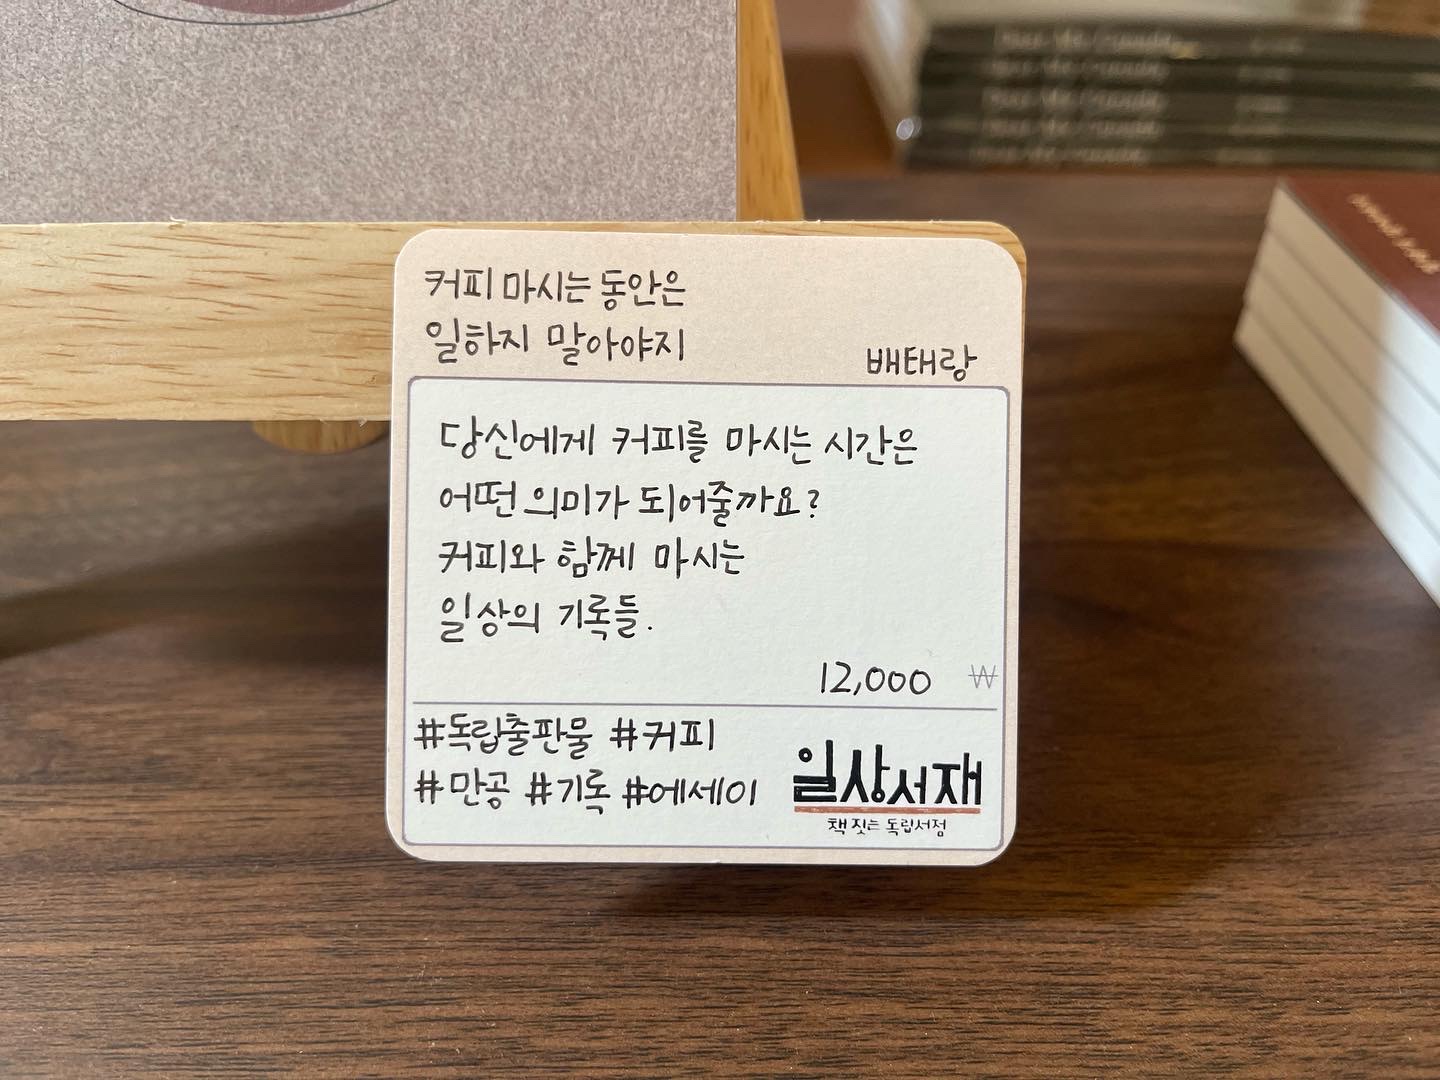 커피 마시는 동안은
일하지 말아야지
배태랑
당신에게 커피를 마시는 시간은
어떤 의미가 되어줄까요?
커피와 함께 마시는
일상의 기록들.
12,000 ₩
#독립출판물 #커피
#만공 #기록 #에세이
일상서재
책 짓는 독립서점